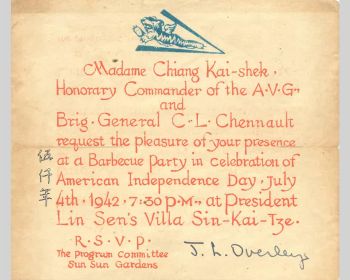 Madame Chiang Kai-shek,
Honorary Commander of the A·V·G··
and
Brig·General C·L·Chennault
request the pleasure of your presence
at a Barbecue Party in celebration of
American Independence Day, July
4th, 1942, 7:30 P.M., at President
Lin Sen's Villa Sin-Kai-Tze.
R·S·V·P
The Program Committee
Sun Sun Gardens
J. L. Overley